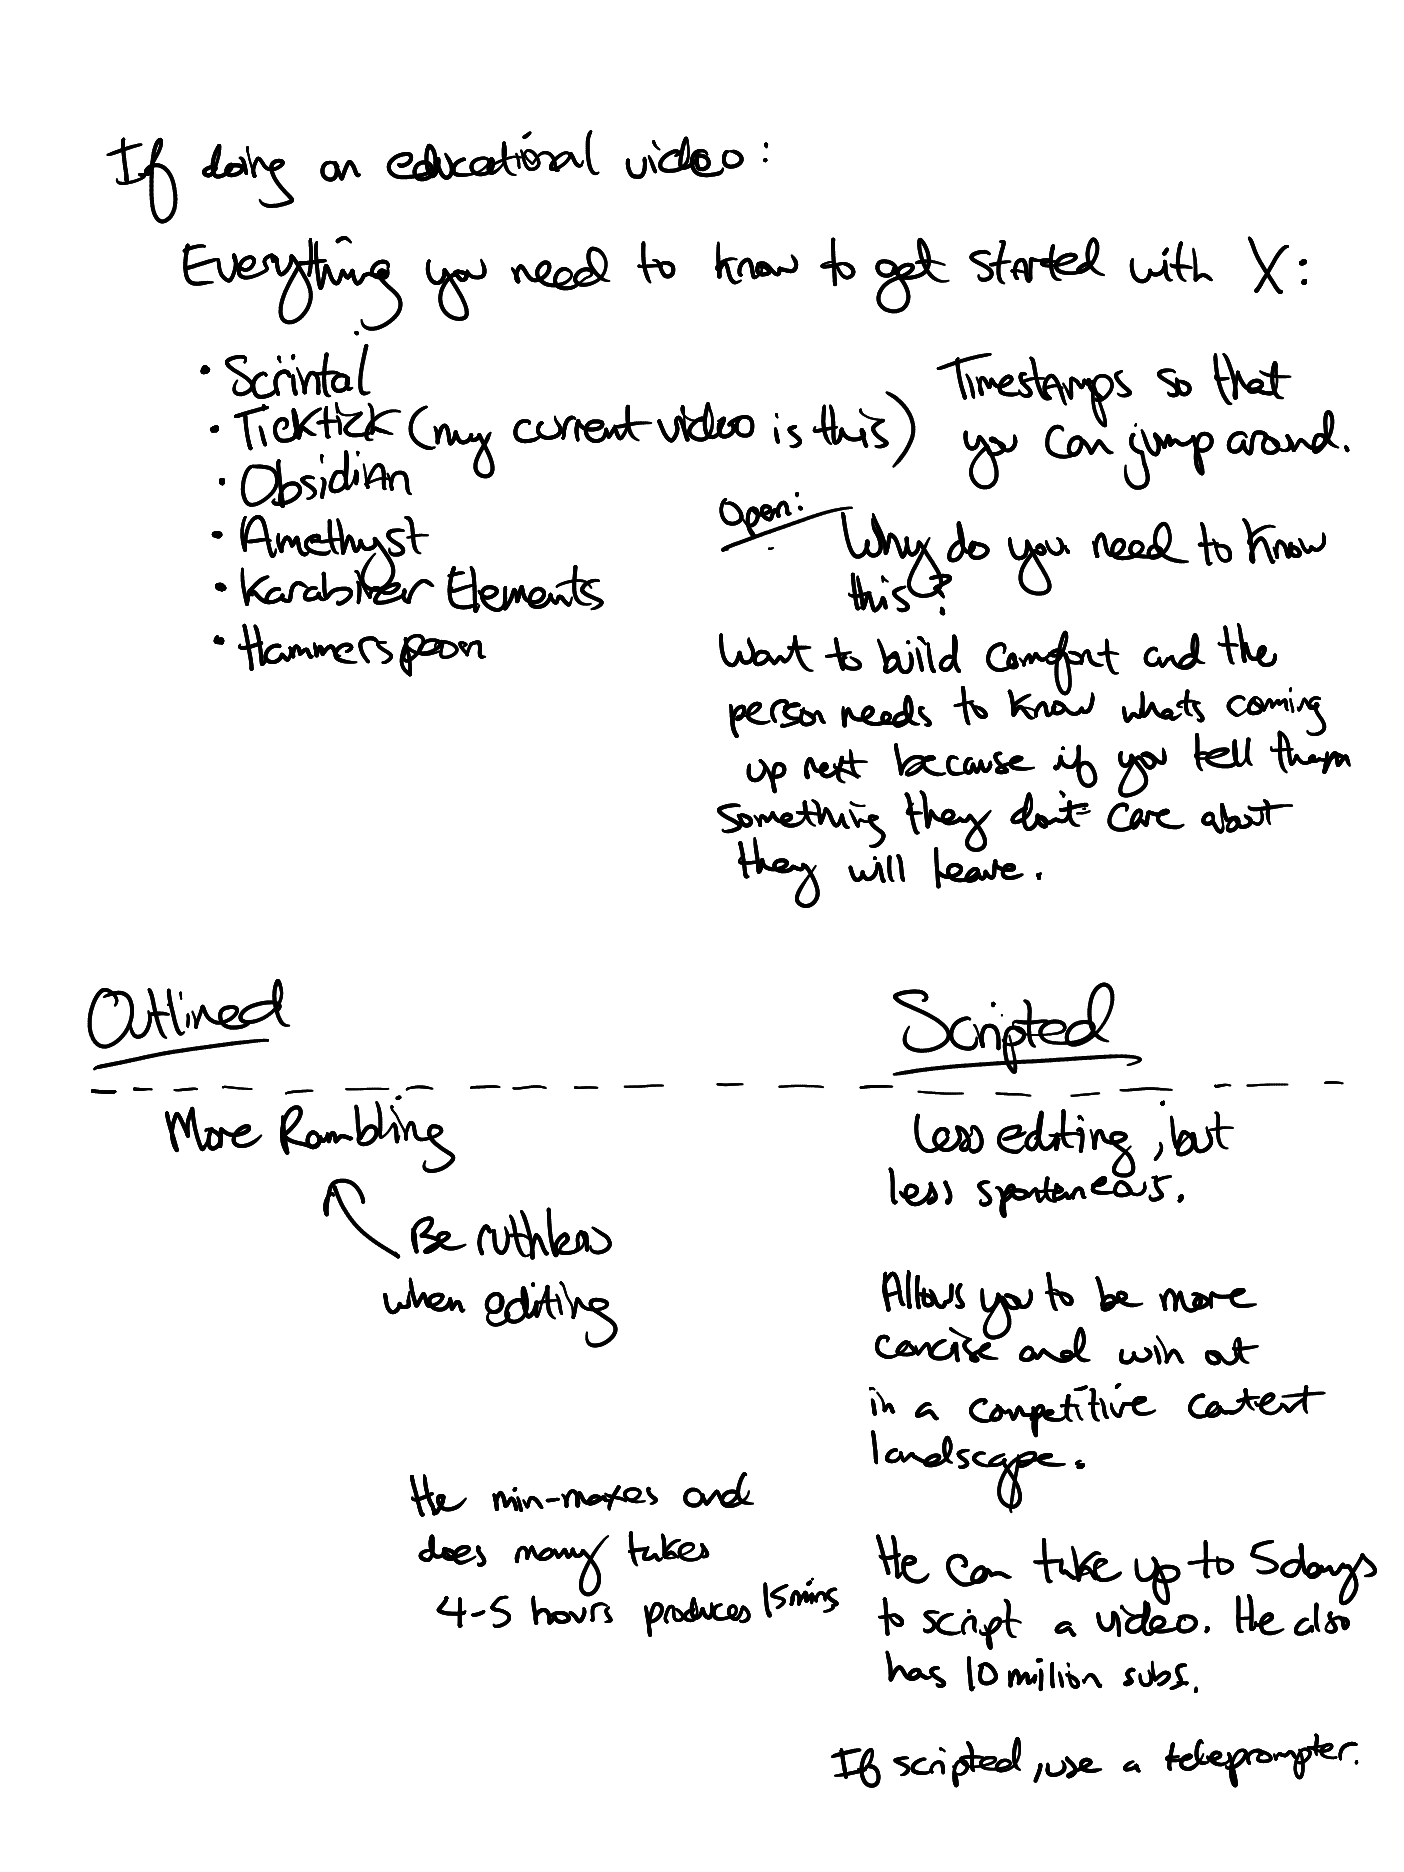 If doing an educational video:
Everything you need to know to get started with X:
• Scrintal
• Ticktick (my current video is this)
• Obsidian
• Amethyst
• Karabiner Elements
• Hammerspoon
Timestamps so that
you can jump around.
Open:
Why do you need to know
this?
Want to build comfort and the
person needs to know whats coming
up next because if you tell them
something they don't care about
they will leave.
Outlined
More Rambling
Be ruthless
when editing
He min-maxes and
does many takes
4-5 hours produces 15mins
Scripted
Less editing, but
less spontaneous.
Allows you to be more
concise and win out
in a competitive content
landscape.
He can take up to 5 days
to script a video. He also
has 10 million subs.
If scripted, use a teleprompter.